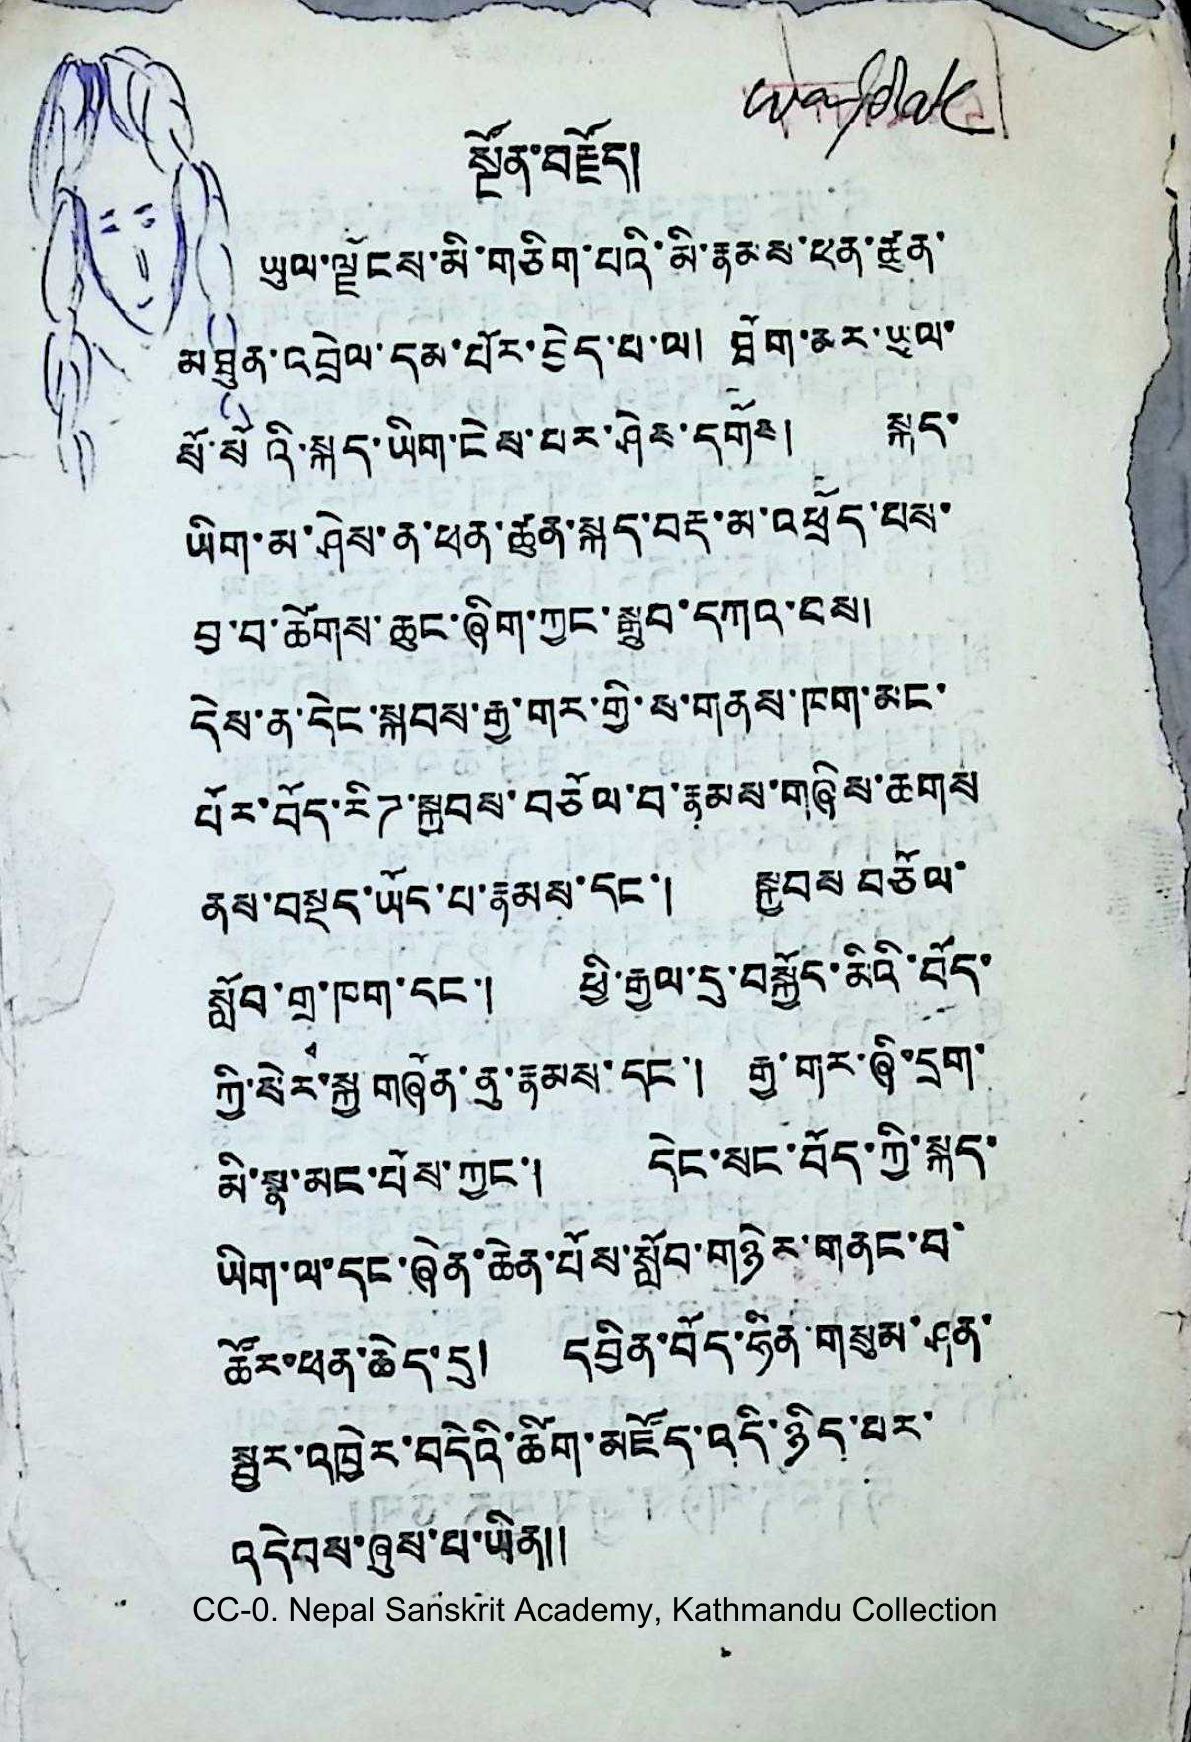 སྔོན་བརྗོད།
ཡུལ་ལྗོངས་མི་གཅིག་པའི་མི་རྣམས་ཕན་ཚུན་
མཐུན་འབྲེལ་དམ་པོར་བྱེད་པ་ལ། ཐོག་མར་ཡུལ་
སོ་སོ་འི་སྐད་ཡིག་ངེས་པར་ཤེས་དགོས། སྐད་
ཡིག་མ་ཤེས་ན་ཕན་ཚུན་སྐད་བརྡ་མ་འཕྲོད་པས་
བྱ་བ་ཚོགས་ཆུང་ཞིག་ཀྱང་སྒྲུབ་དཀའ་བས།
དེས་ན་དེང་སྐབས་རྒྱ་གར་གྱི་ས་གནས་ཁག་མང་
པོར་བོད་རིཊ་སྐྱབས་བཅོལ་བ་རྣམས་གཞིས་ཆགས
ནས་བསྡད་ཡོད་པ་རྣམས་དང་། སྐྱབས བཅོལ་
སློབ་གྲྭ་ཁག་དང་། ཕྱི་རྒྱལ་དུ་བསྐྱོད་མིའི་བོད་
ཀྱི་སེར་སྐྱ གཞོན་ནུ་རྣམས་དང་། རྒྱ་གར་ཞི་དྲག་
མི་སྣ་མང་པོས་ཀྱང་། དེང་སང་བོད་ཀྱི་སྐད་
ཡིག་ལ་དང་ཞེན་ཆེན་པོས་སློབ་གཉེར་གནང་བ་
ཚོར་ཕན་ཆེད་དུ། དབྱིན་བོད་ཧིན་གསུམ་ཤན་
སྦྱར་འཁྱེར་བདེའི་ཚིག་མཛོད་འདི་ཉིད་པར་
འདེབས་ཞུས་པ་ཡིན།།
CC-0. Nepal Sanskrit Academy, Kathmandu Collection